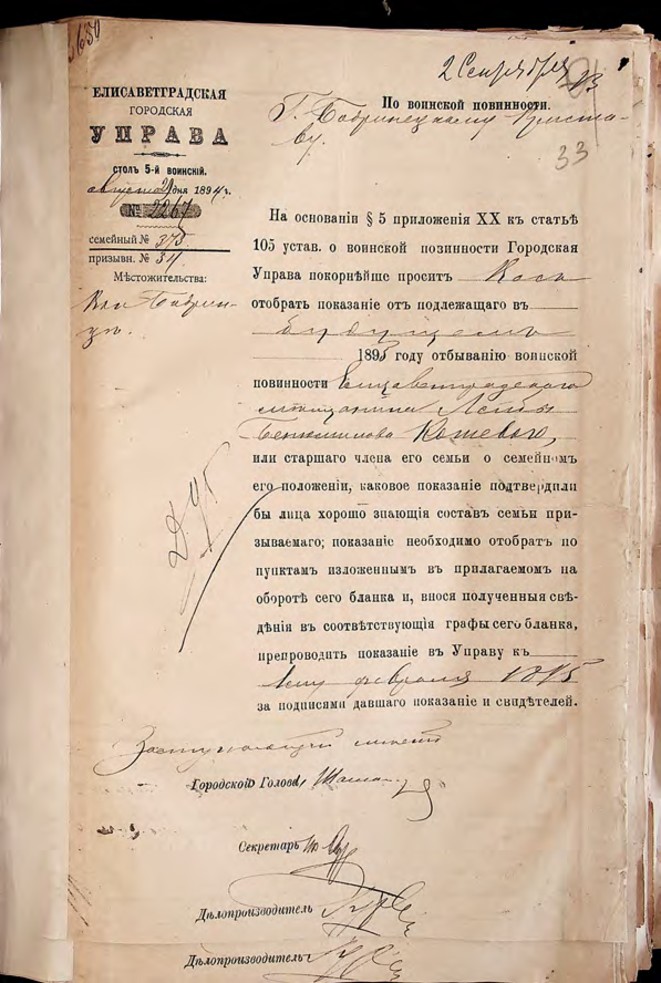 2 Сентября 93
ЕЛИСАВЕТГРАДСКАЯ
ГОРОДСКАЯ
УПРАВА
СТОЛЪ 5-й ВОИНСКІЙ.
августа 21 дня 1894 г.
№ 2267
семейный № 375
призывн. № 34
Мѣстожительства:
По воинской повинности.
Г. Бобринецкому Приста-
ву.
33
На основаніи § 5 приложенія XX къ статьѣ
105 устав. о воинской повинности Городская
Управа покорнѣйше проситъ Васъ
отобрать показаніе отъ подлежащаго въ
будущемъ
1895 году отбыванію воинской
повинности Елисаветградскаго
мѣщанина Лейбы
Кошеваго,
или старшаго члена его семьи о семейномъ
его положеніи, каковое показаніе подтвердили
бы лица хорошо знающія составъ семьи при-
зываемаго; показаніе необходимо отобрать по
пунктамъ изложеннымъ въ прилагаемомъ на
оборотѣ сего бланка и, внося полученныя свѣ-
дѣнія въ соотвѣтствующія графы сего бланка,
препроводить показаніе въ Управу къ
1му февраля 1895
за подписями давшаго показаніе и свидѣтелей.
Заступающій мѣсто
Городского Головы
Секретарь
Дѣлопроизводитель
Дѣлопроизводитель